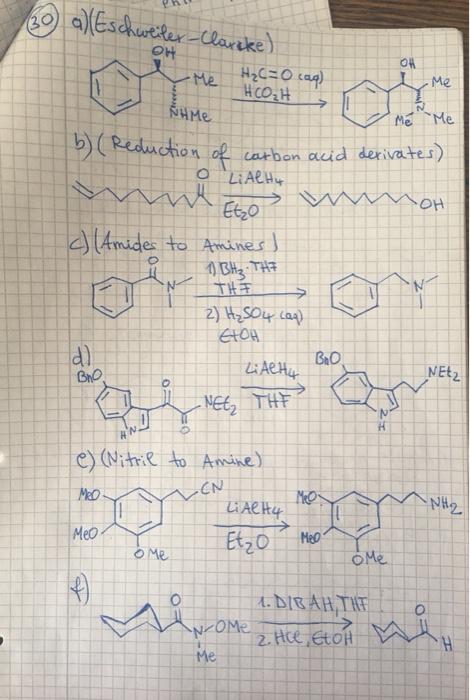 30) a) (Eschweiler-Clarcke)
OH
Me
NHMe
H₂C=O (aq)
HCO₂H
OH
Me
N
Me
Me
b) (Reduction of carbon acid derivates)
O
LiAlH₄
Et₂O
OH
c) (Amides to Amines)
O
N
1) BH₃·THF
THF
2) H₂SO₄ (aq)
EtOH
N
d)
BnO
O
NEt₂
O
HN
LiAlH₄
THF
BnO
NEt₂
N
H
e) (Nitril to Amine)
MeO
CN
MeO
OMe
LiAlH₄
Et₂O
MeO
NH₂
MeO
OMe
f)
O
N-OMe
Me
1. DIBAH, THF
2. HCl, EtOH
O
H